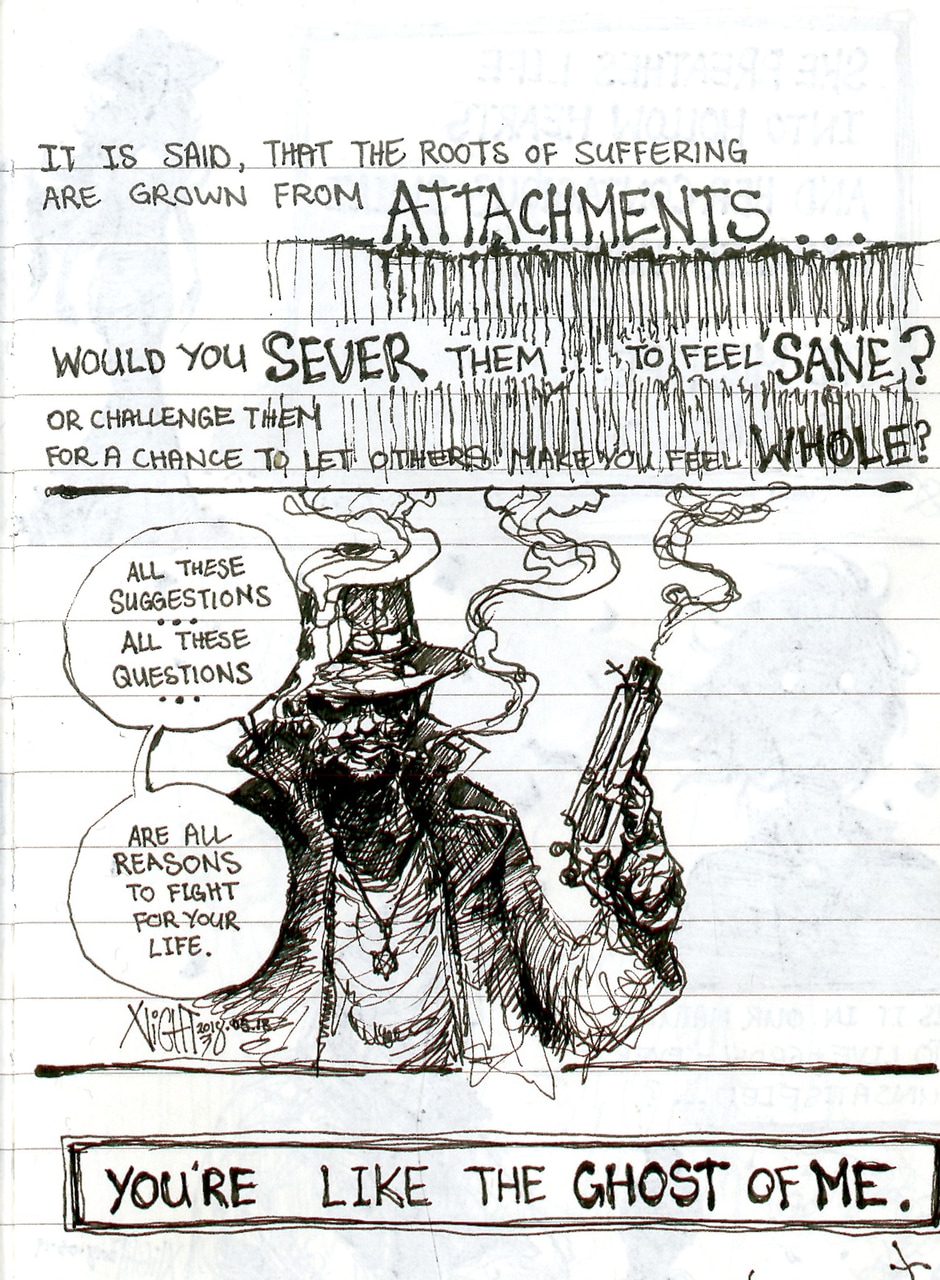 IT IS SAID, THAT THE ROOTS OF SUFFERING
ARE GROWN FROM ATTACHMENTS...
WOULD YOU SEVER THEM ... TO FEEL SANE?
OR CHALLENGE THEM
FOR A CHANCE TO LET OTHERS MAKE YOU FEEL WHOLE?
ALL THESE
SUGGESTIONS
...
ALL THESE
QUESTIONS
...
ARE ALL
REASONS
TO FIGHT
FOR YOUR
LIFE.
XLIGHT 2018.05.18
YOU'RE LIKE THE GHOST OF ME.